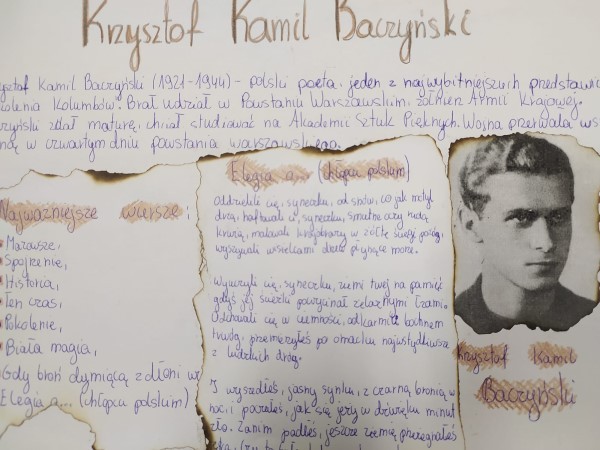 Krzysztof Kamil Baczyński
ysztof Kamil Baczyński (1921-1944) - polski poeta, jeden z najwybitniejszych przedstawic
olenia Kolumbów. Brał udział w Powstaniu Warszawskim, żołnierz Armii Krajowej.
czyński zdał maturę, chciał studiować na Akademii Sztuk Pięknych. Wojna przerwała ws
nął w czwartym dniu powstania warszawskiego.
Najważniejsze wiersze:
Mazowsze,
Spojrzenie,
Historia,
Ten czas,
Pokolenie,
Biała magia,
Gdy broń dymiącą z dłoni w
Elegia o... (chłopcu polskim)
Elegia o... (chłopcu polskim)
Oddzielili cię, syneczku, od snów, co jak motyl
drżą, haftowali ci, syneczku, smutne oczy rudą
krwią, malowali krajobrazy w żółte ściegi pożóg,
wyszywali wisielcami drzew płynące morze.
Wyuczyli cię, syneczku, ziemi twej na pamięć
gdyś jej ścieżki powycinał żelaznymi łzami.
Odchowali cię w ciemności, odkarmili bochnem
trwóg, przemierzyłeś po omacku najwstydliwsze
z ludzkich dróg.
I wyszedłeś, jasny synku, z czarną bronią w
noc, i poczułeś, jak się jeży w dźwięku minut
zło. Zanim padłeś, jeszcze ziemię przeżegnałeś
Krzysztof Kamil
Baczyński